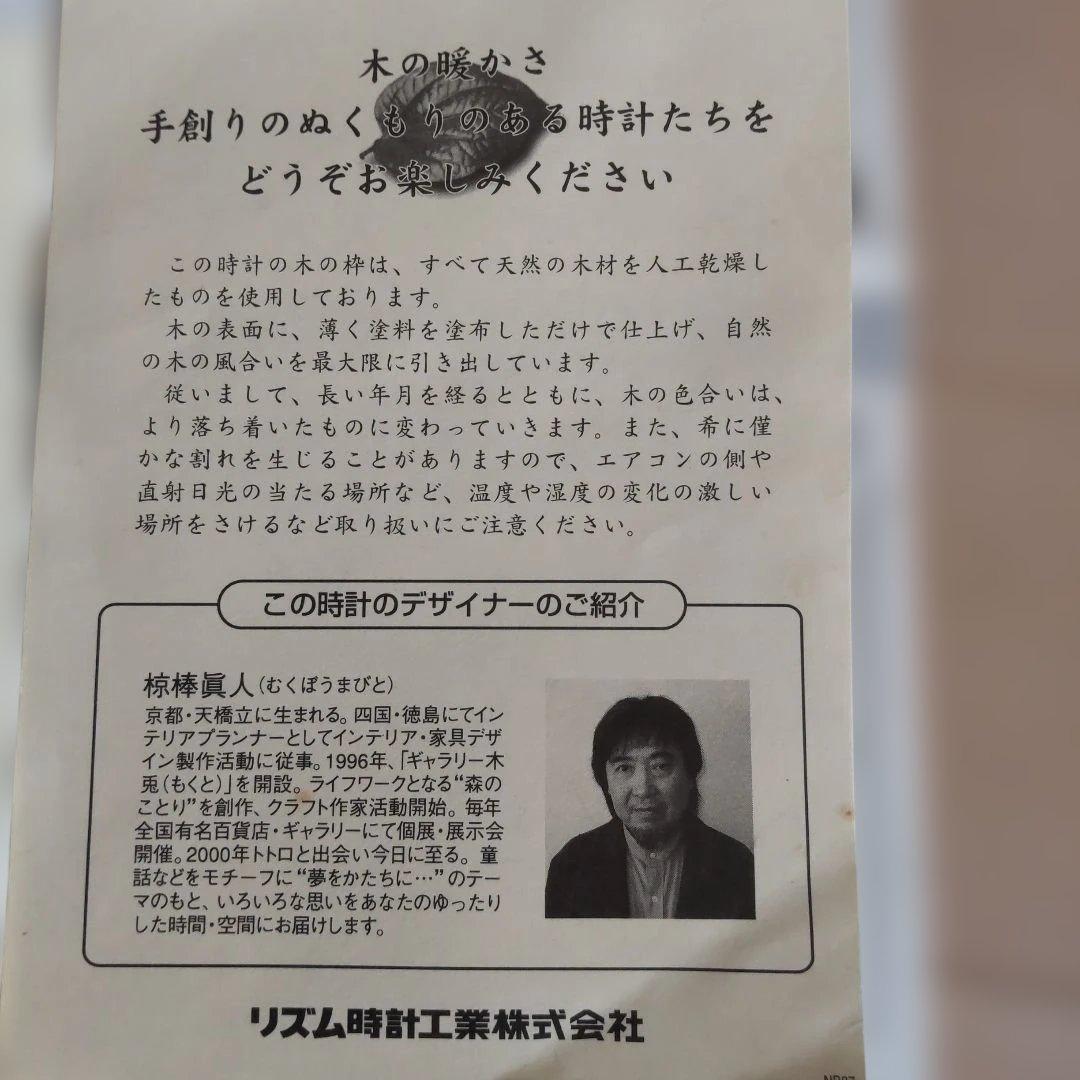 木の暖かさ
手創りのぬくもりのある時計たちを
どうぞお楽しみください
この時計の木の枠は、すべて天然の木材を人工乾燥し
たものを使用しております。
木の表面に、薄く塗料を塗布しただけで仕上げ、自然
の木の風合いを最大限に引き出しています。
従いまして、長い年月を経るとともに、木の色合いは、
より落ち着いたものに変わっていきます。また、希に僅
かな割れを生じることがありますので、エアコンの側や
直射日光の当たる場所など、温度や湿度の変化の激しい
場所をさけるなど取り扱いにご注意ください。
この時計のデザイナーのご紹介
椋棒眞人(むくぼうまびと)
京都・天橋立に生まれる。四国・徳島にてイン
テリアプランナーとしてインテリア・家具デザ
イン製作活動に従事。1996年、「ギャラリー木
兎(もくと)」を開設。ライフワークとなる“森の
ことり”を創作、クラフト作家活動開始。毎年
全国有名百貨店・ギャラリーにて個展・展示会
開催。2000年トトロと出会い今日に至る。童
話などをモチーフに“夢をかたちに…”のテー
マのもと、いろいろな思いをあなたのゆったり
した時間・空間にお届けします。
リズム時計工業株式会社